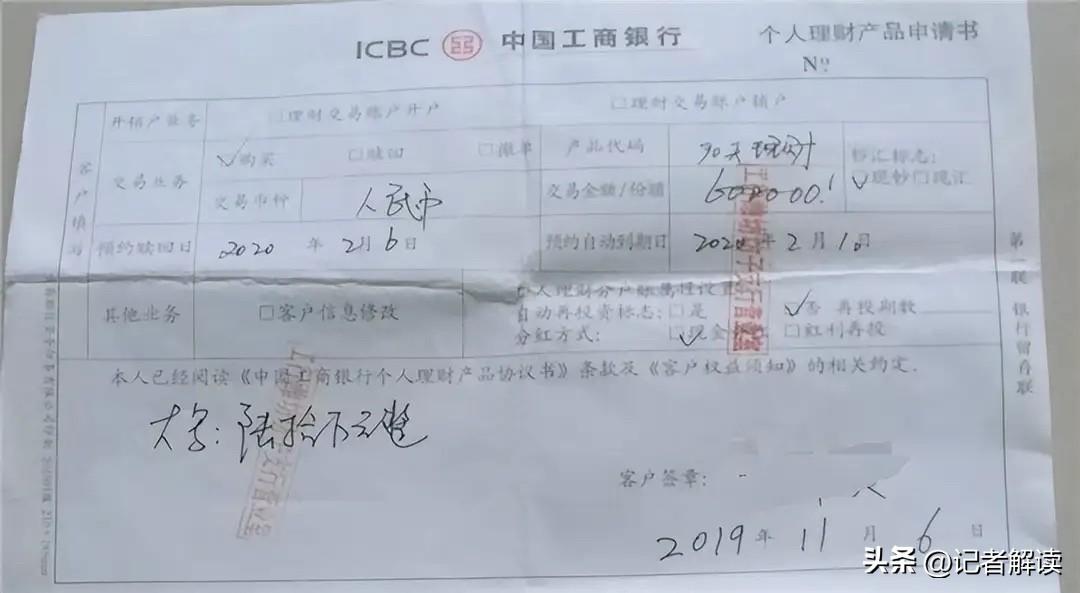 ICBC 中国工商银行 个人理财产品申请书
№
开销户业务 □理财交易账户开户 □理财交易账户销户
客户填写
交易业务 ☑购买 □赎回 □撤单 产品代码 90天理财 钞汇标志:
交易币种 人民币 交易金额/份额 600000! ☑现钞□现汇
预约赎回日 2020年2月6日 预约自动到期日 2020年2月10日
其他业务 □客户信息修改
个人理财分户账属性设置
自动再投资标志:□是 ☑否 再投期数
分红方式: ☑现金 □红利再投
本人已经阅读《中国工商银行个人理财产品协议书》条款及《客户权益须知》的相关约定.
大写:陆拾万元整
客户签章:
2019年11月6日
第一联 银行留存联
头条 @记者解读